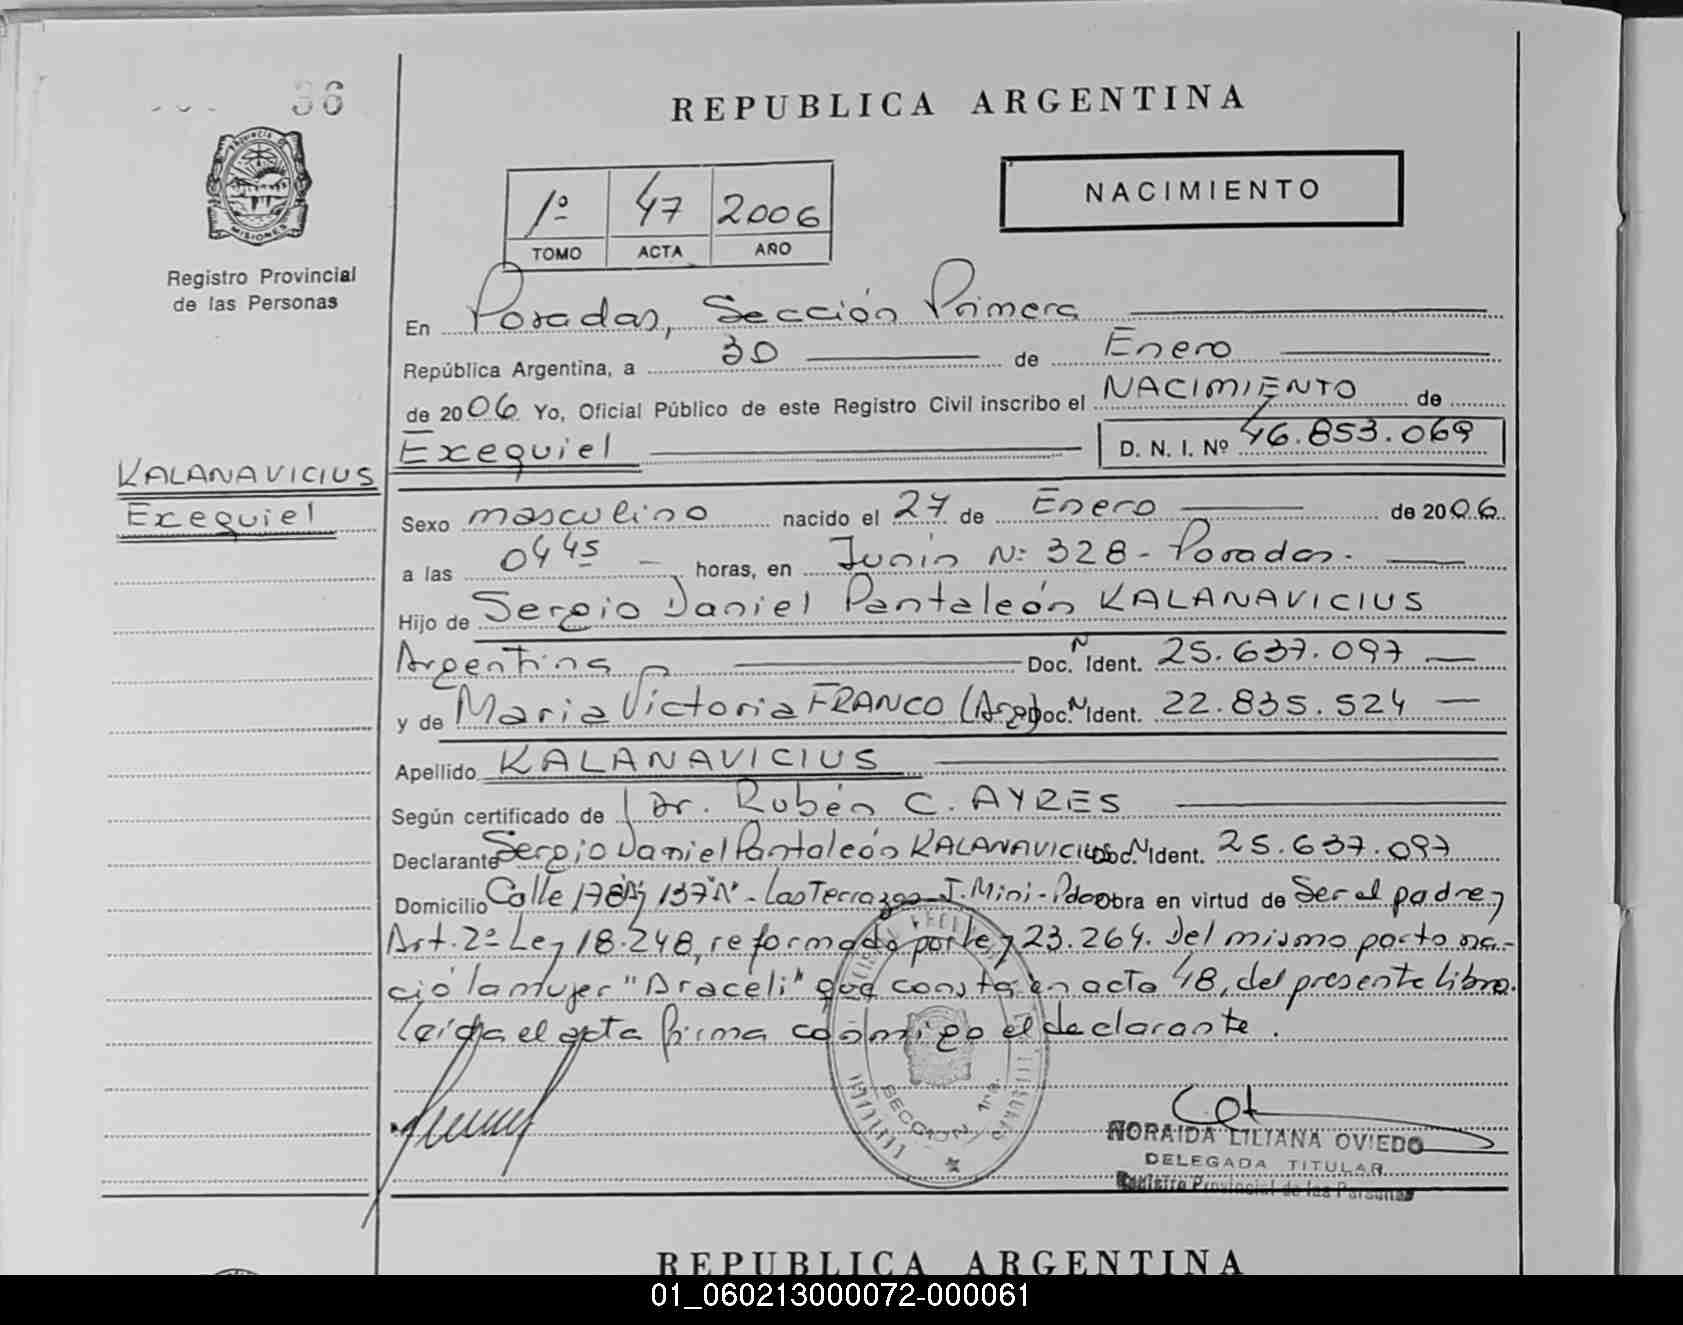 36
PROVINCIA DE
MISIONES
Registro Provincial
de las Personas
REPUBLICA ARGENTINA
NACIMIENTO
1º 47 2006
TOMO ACTA AÑO
En Posadas, Sección Primera
República Argentina, a 30 de Enero
de 2006 Yo, Oficial Público de este Registro Civil inscribo el NACIMIENTO de
Exequiel D. N. I. Nº 46.853.069
KALANAVICIUS
Exequiel
Sexo masculino nacido el 27 de Enero de 2006.
a las 04 45 horas, en Junín Nº 328 - Posadas.
Hijo de Sergio Daniel Pantaleón KALANAVICIUS
Argentina Doc. N Ident. 25.637.097
y de Maria Victoria FRANCO (Arg) Doc. N Ident. 22.835.524
Apellido KALANAVICIUS
Según certificado de Dr. Rubén C. AYRES
Declarante Sergio Daniel Pantaleón KALANAVICIUS Doc. N Ident. 25.637.097
Domicilio Calle 178"A" y 137"A" - Las Terrazas - I. Mini - Pdas Obra en virtud de Ser el padre y
Art. 2º Ley 18.248, reformado por ley 23.264. Del mismo parto na-
ció la mujer "Araceli" que consta en acta 48, del presente libro.
Leída el acta firma conmigo el declarante.
SECCION 1ra.
NORAIDA LILIANA OVIEDO
DELEGADA TITULAR
Registro Provincial de las Personas
REPUBLICA ARGENTINA
01_060213000072-000061